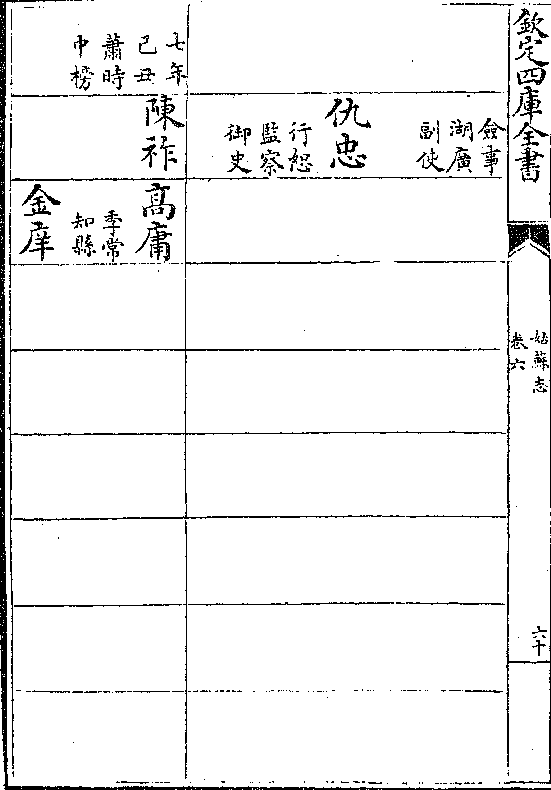 欽定四庫全書
姑蘇志
卷六
六十
僉事
湖廣
副使
仇忠
行恕
監察
御史
七年
己丑
蕭時
中榜
陳祚
高庸
季常
知縣
金庠